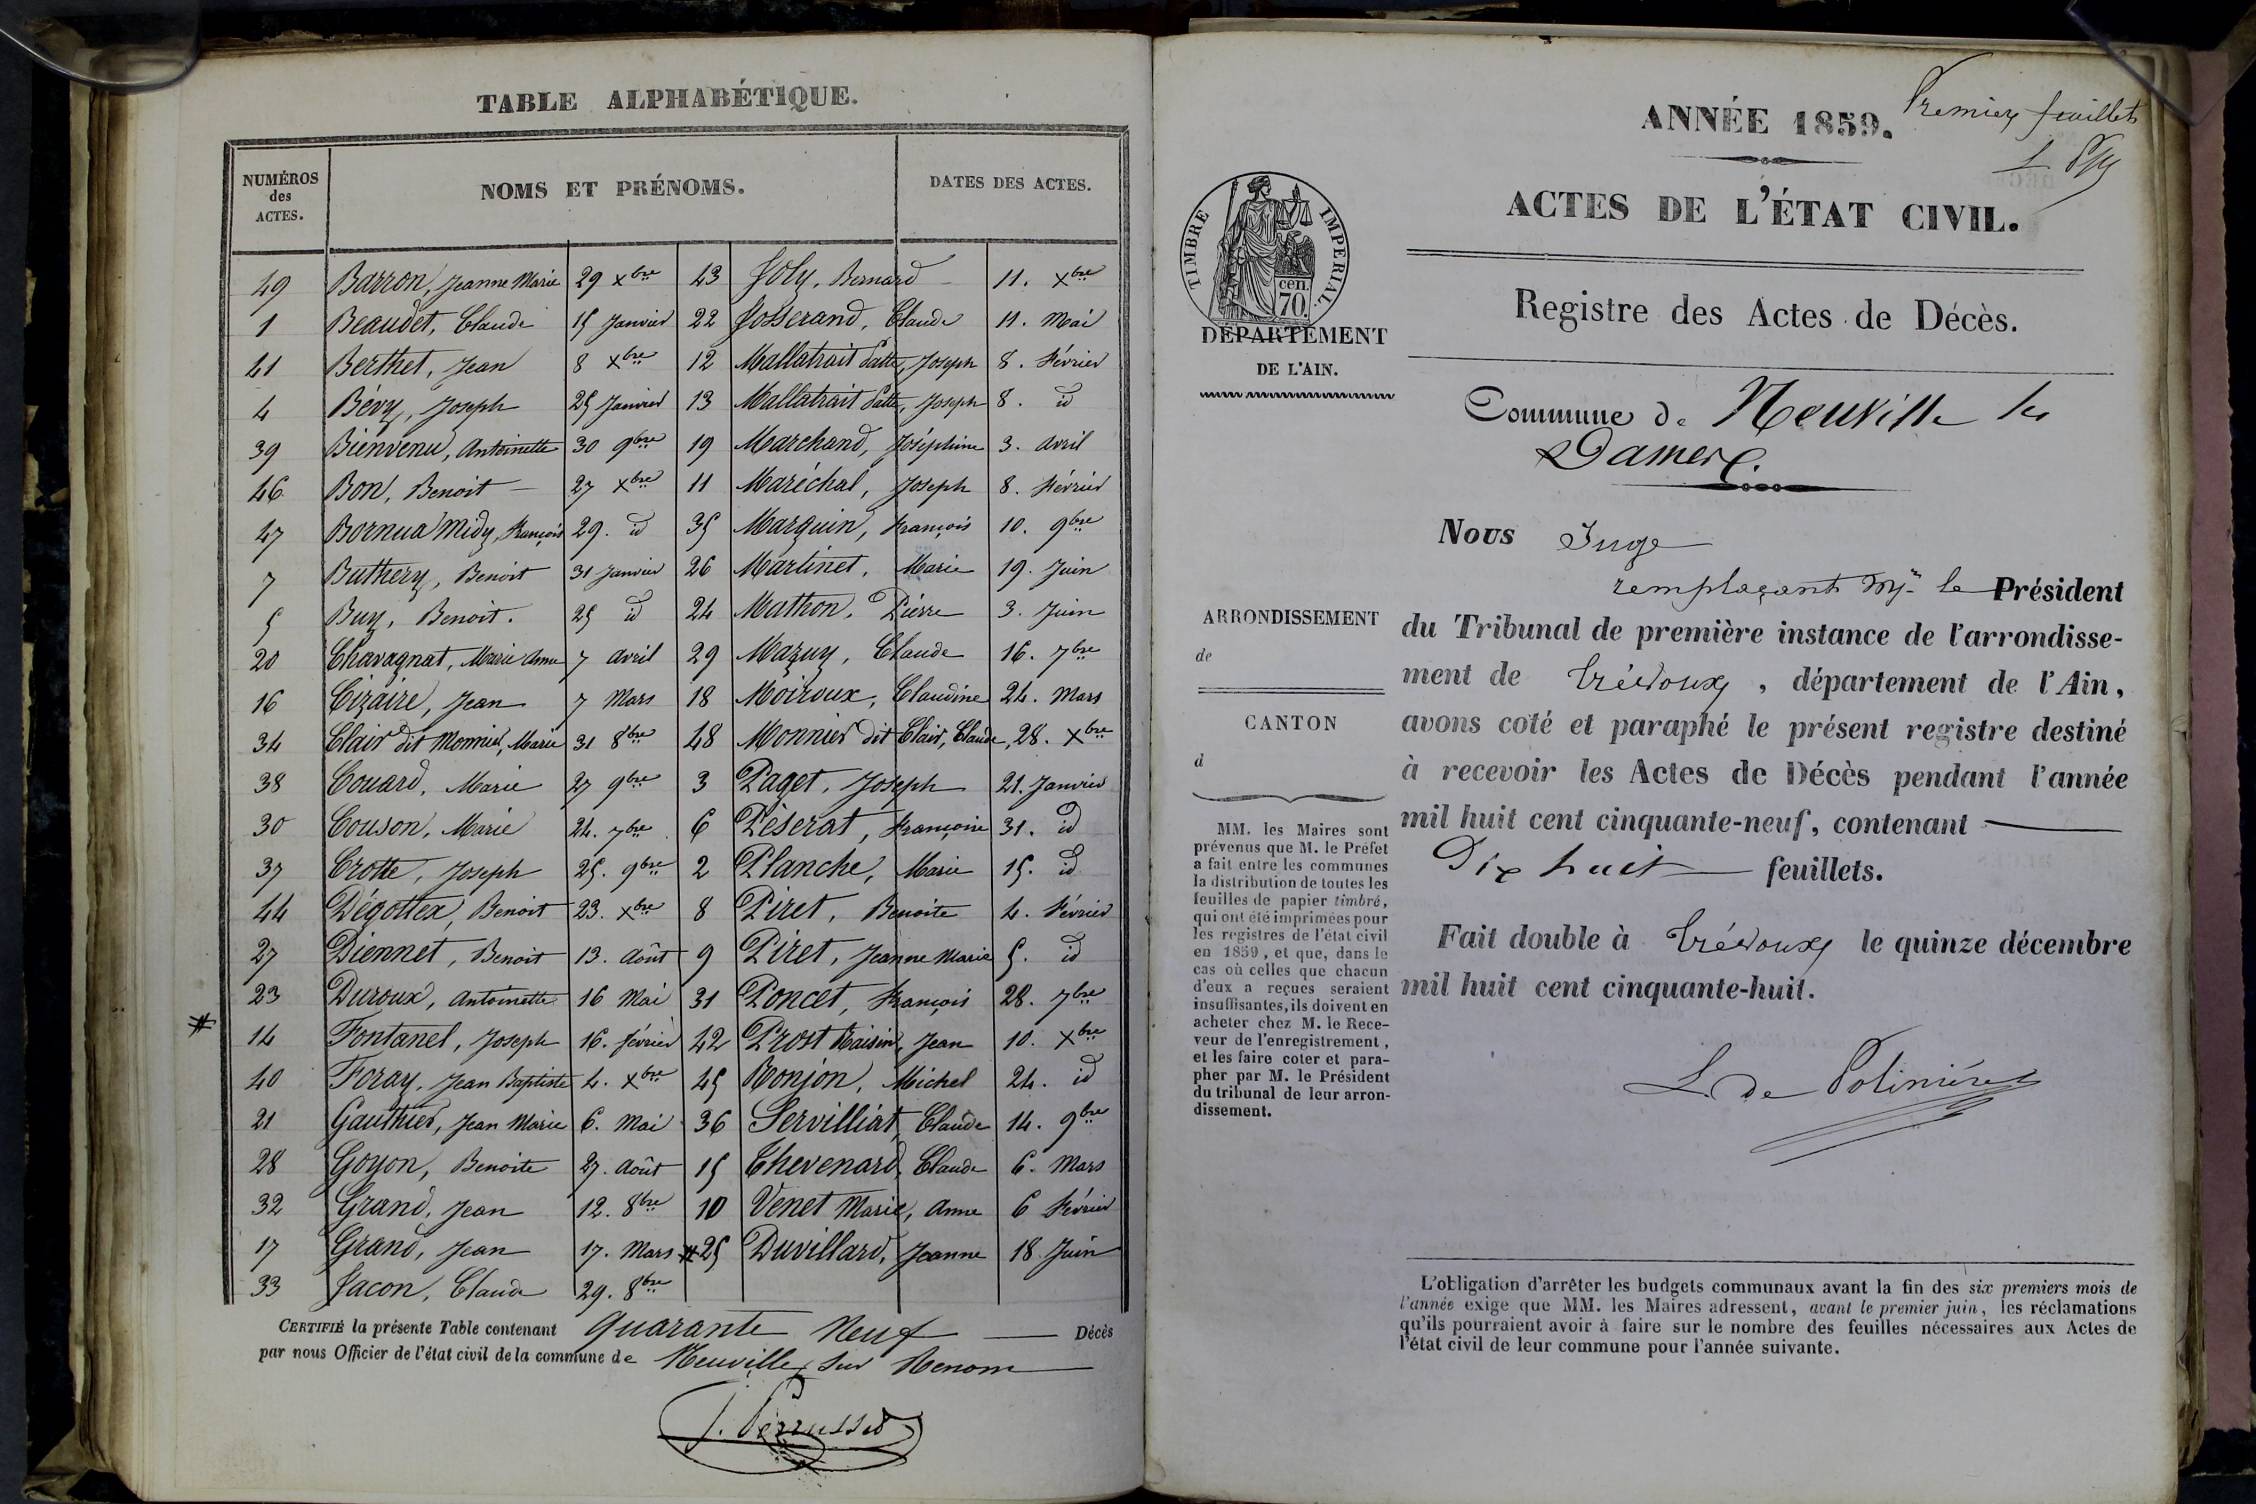 TABLE ALPHABÉTIQUE.
NUMÉROS
des
ACTES.
NOMS ET PRÉNOMS.
DATES DES ACTES.
49 Barron, Jeanne Marie 29 Xbre 43 Joly, Bernard 11. Xbre
1 Beaudet, Claude 15 Janvier 22 Josserand, Claude 11. Mai
41 Berthet, Jean 8 Xbre 12 Mallatrait Patte, Joseph 8. Février
4 Bévy, Joseph 25 Janvier 13 Mallatrait Patte, Joseph 8. id
39 Bienvenu, Antoinette 30 9bre 19 Marchand, Joséphine 3. Avril
46 Bon, Benoit 27 Xbre 11 Maréchal, Joseph 8. Février
47 Bornua Midy, François 29. id 35 Marguin, François 10. 9bre
7 Buthery, Benoit 31 Janvier 26 Martinet, Marie 19. Juin
5 Buy, Benoit. 25 id 24 Mathon, Pierre 3. Juin
20 Chavagnat, Marie Anne 7 Avril 29 Mazuy, Claude 16. 7bre
16 Cizaire, Jean 7 Mars 18 Moiroux, Claudine 24. Mars
34 Clair dit Monnier, Marie 31 8bre 48 Monnier dit Clair, Claude, 28. Xbre
38 Couard, Marie 27 9bre 3 Paget, Joseph 21. Janvier
30 Couson, Marie 24. 7bre 6 Péserat, Françoise 31. id
37 Crotte, Joseph 25. 9bre 2 Planche, Marie 15. id
44 Dégottex, Benoit 23. Xbre 8 Piret, Benoite 4. Février
27 Diennet, Benoit 13. Août 9 Piret, Jeanne Marie 5. id
23 Duroux, Antoinette 16 Mai 31 Poncet, François 28. 7bre
# 14 Fontanel, Joseph 16. février 42 Prost Raisin, Jean 10. Xbre
40 Foray, Jean Baptiste 4. Xbre 45 Ronjon, Michel 24. id
21 Gauthier, Jean Marie 6. Mai 36 Servilliat, Claude 14. 9bre
28 Goyon, Benoite 27. Août 15 Thevenard, Claude 6. Mars
32 Grand, Jean 12. 8bre 10 Venet Marie, Anne 6 Février
17 Grand, Jean 17. Mars # 25 Duvillard, Jeanne 18 Juin
33 Jacon, Claude 29. 8bre
CERTIFIÉ la présente Table contenant quarante Neuf Décès
par nous Officier de l'état civil de la commune de Neuville sur Renom
J. Perrusset
Premier feuillet
ANNÉE 1859.
ACTES DE L'ÉTAT CIVIL.
Registre des Actes de Décès.
TIMBRE IMPERIAL.
cen.
70.
DÉPARTEMENT
DE L'AIN.
Commune de Neuville les
Dames.
Nous Juge
remplaçant Mr le Président
du Tribunal de première instance de l'arrondisse-
ment de Trévoux, département de l'Ain,
avons coté et paraphé le présent registre destiné
à recevoir les Actes de Décès pendant l'année
mil huit cent cinquante-neuf, contenant
Dix huit feuillets.
Fait double à Trévoux le quinze décembre
mil huit cent cinquante-huit.
L. de Polinière
ARRONDISSEMENT
de
CANTON
d
MM. les Maires sont
prévenus que M. le Préfet
a fait entre les communes
la distribution de toutes les
feuilles de papier timbré,
qui ont été imprimées pour
les registres de l'état civil
en 1859, et que, dans le
cas où celles que chacun
d'eux a reçues seraient
insuffisantes, ils doivent en
acheter chez M. le Rece-
veur de l'enregistrement,
et les faire coter et para-
pher par M. le Président
du tribunal de leur arron-
dissement.
L'obligation d'arrêter les budgets communaux avant la fin des six premiers mois de
l'année exige que MM. les Maires adressent, avant le premier juin, les réclamations
qu'ils pourraient avoir à faire sur le nombre des feuilles nécessaires aux Actes de
l'état civil de leur commune pour l'année suivante.